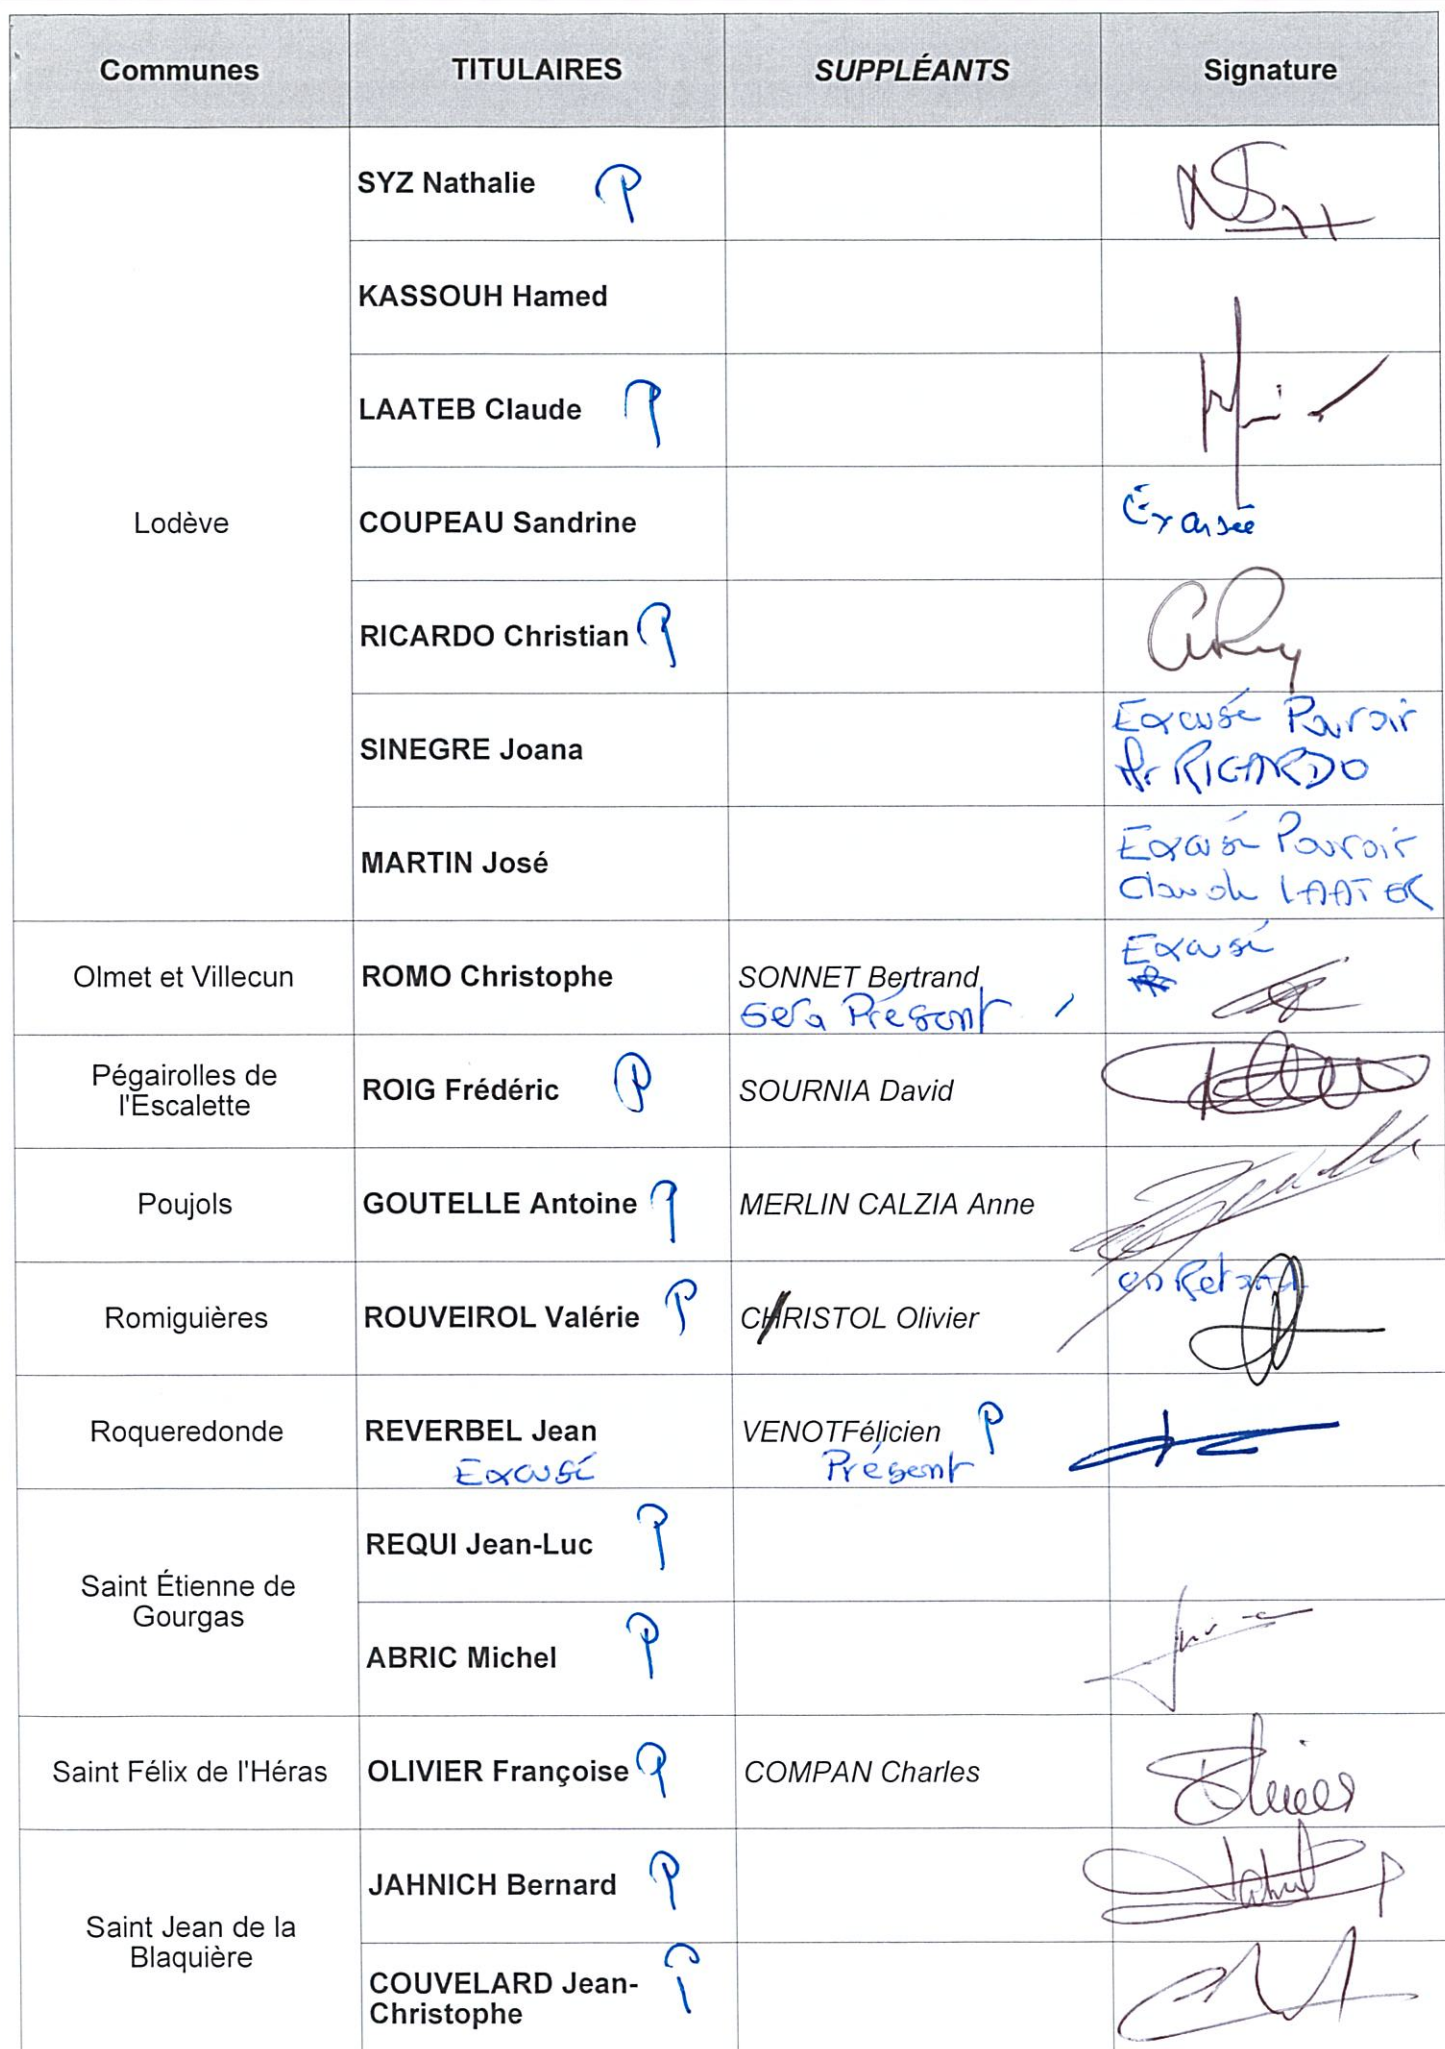 Communes TITULAIRES SUPPLÉANTS Signature
Lodève
SYZ Nathalie P
KASSOUH Hamed
LAATEB Claude P
COUPEAU Sandrine Excusée
RICARDO Christian P
SINEGRE Joana
Excusé Pouvoir
Mr RICARDO
MARTIN José
Excusé Pouvoir
Claude LAATEB
Olmet et Villecun ROMO Christophe SONNET Bertrand Excusé
Sera Présent
Pégairolles de
l'Escalette
ROIG Frédéric P SOURNIA David
Poujols GOUTELLE Antoine P MERLIN CALZIA Anne
en Retard
Romiguières ROUVEIROL Valérie P CHRISTOL Olivier
Roqueredonde REVERBEL Jean VENOTFélicien P
Excusé Présent
Saint Étienne de
Gourgas
REQUI Jean-Luc P
ABRIC Michel P
Saint Félix de l'Héras OLIVIER Françoise P COMPAN Charles
Saint Jean de la
Blaquière
JAHNICH Bernard P
COUVELARD Jean-
Christophe P